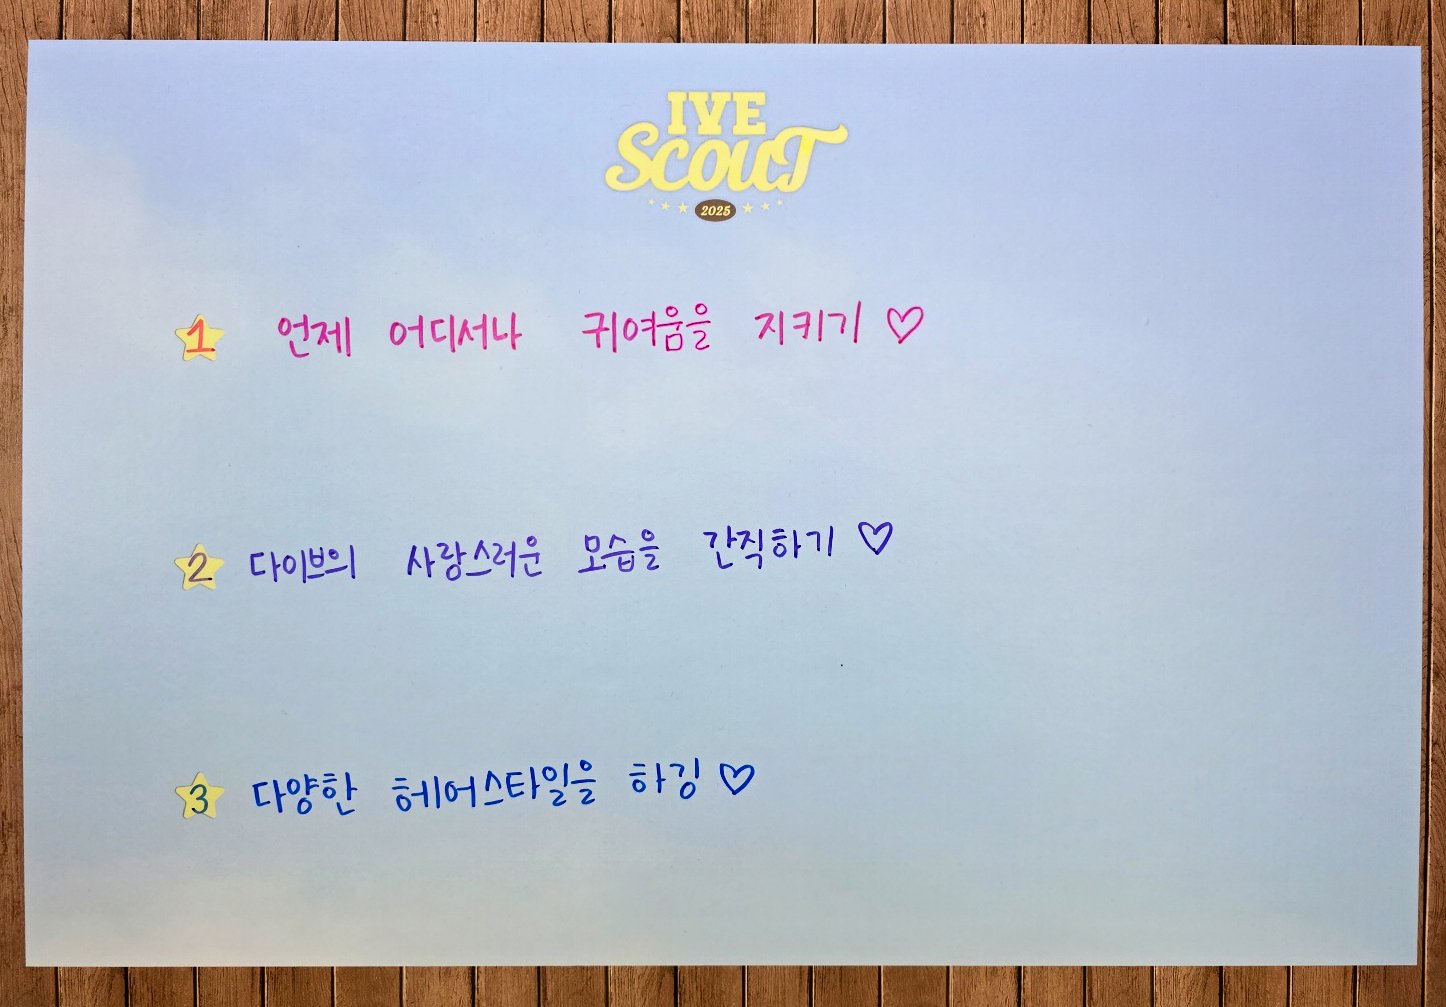 IVE
SCOUT
2025
1 언제 어디서나 귀여움을 지키기 ♡
2 다이브의 사랑스러운 모습을 간직하기 ♡
3 다양한 헤어스타일을 하깅 ♡